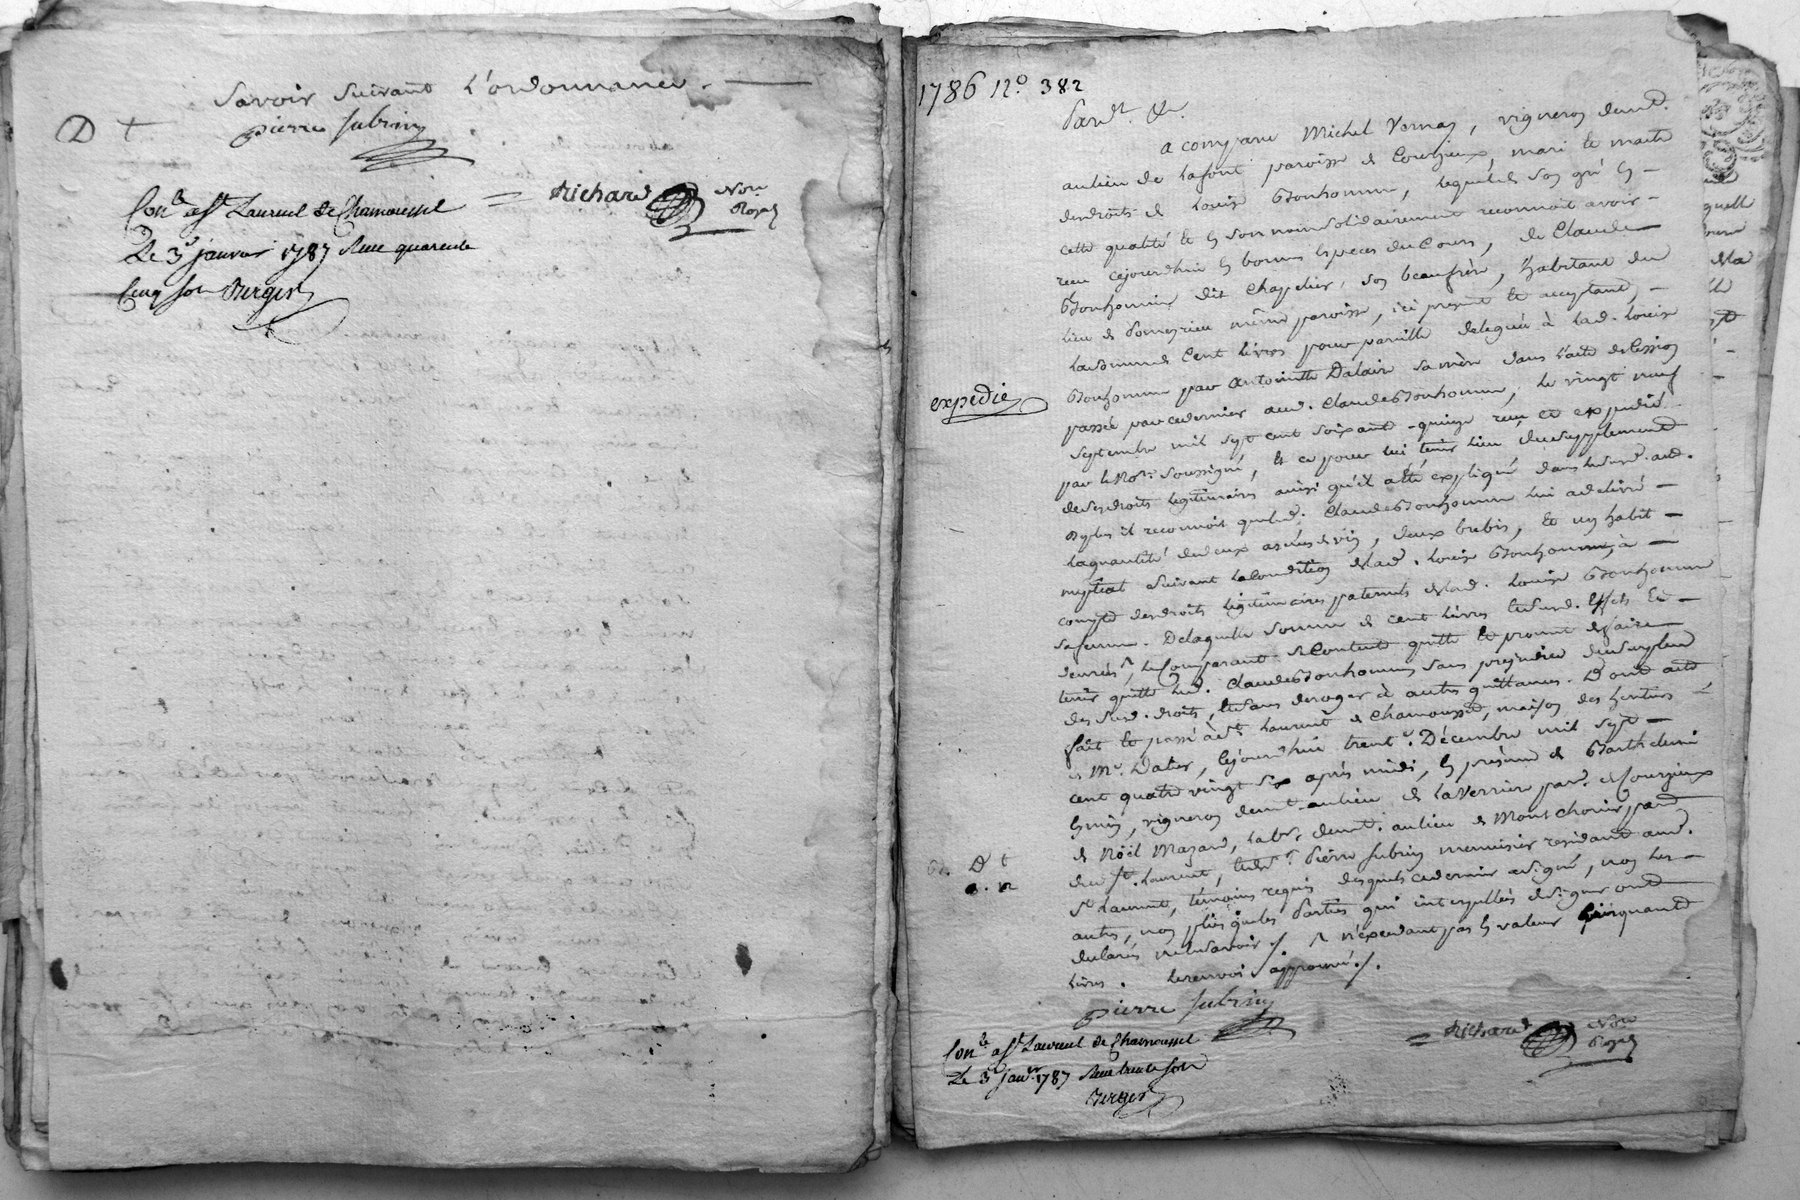 savoir suivant L'ordonnance.
D t
pierre Subrin
Richard Nore Royal
Con.lé a St Laurent de Chamousset
Le 3 janvier 1787 Reçu quarente
Cinq sols Berger
1786 N.º 382
Pard.t &c.
a comparu Michel Vernay, vigneron demt.
au lieu de Lafont paroisse de Courzieux, mari et maitre
des droits de Louise Bonhomme, lequel de son gré en
cette qualité et en son nom solidairement reconnoit avoir
reçu cejourd'hui en bonnes especes du Cours, de Claude
Bonhomme dit Chapelier, son beaufrère, habitant du
lieu de mème paroisse, ici present et acceptant,
la somme de Cent Livres pour pareille deleguée à lad. Louise
Bonhomme par Antoinette Dalair sa mère dans l'acte de Cession
passée par ce dernier aud. Claude Bonhomme, le vingt neuf
septembre mil sept cent soixante-quinze reçu et expedié
expedié
par le No.re soussigné, et ce pour lui tenir lieu du supplement
de ses droits legitimaires ainsi qu'il a été expliqué dans led. acte.
De plus il reconnoit que led. Claude Bonhomme lui a delivré
la quantité de deux anées de vin, deux brebis, et un habit
nuptial suivant la Condition de lad. Louise Bonhomme, à
compte des droits legitimaires paternels de lad. Louise Bonhomme
sa femme. De laquelle somme de cent livres et susd. effets et
denrées, le Comparant se Contente quitte et promet de faire
tenir quitte led. Claude Bonhomme sans prejudice du surplus
des susd. droits, et sans deroger à autres quittances. Dont acte
fait et passé à St. Laurent de Chamousset, maison des heritiers
de Me. Dalier, cejourd'hui trente Décembre mil sept
cent quatre vingt six après midi, en présence de Barthelemi
vigneron demt. au lieu de la Verrier par. de Courzieux
de Noël Mazard, lab.r demt. au lieu de Montchonin par.
dud. St. Laurent, et de s.r Pierre Subrin menuisier residant aud.
D t
St Laurent, témoins requis desquels ce dernier a signé, non les
autres, non plus que les Parties qui interpellées de signer ont
declarés ne le savoir ./. n'excedant pas en valeur Cinquante
Livres. Le renvoi approuvé ./.
pierre Subrin
Richard Nore Royal
Con.lé a St Laurent de Chamousset
Le 3 janv. 1787 Reçu trente sols
Berger